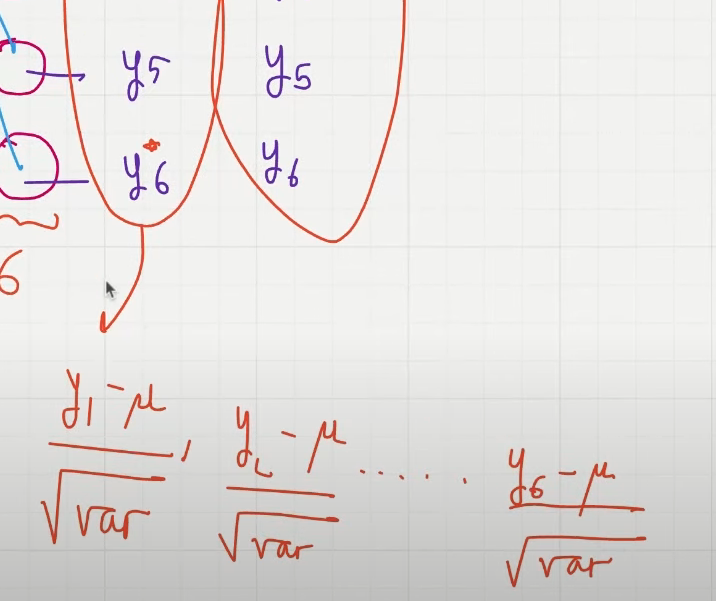 y5 y5
y6 y6
6
y1 - μ / √var , y2 - μ / √var ...... y6 - μ / √var